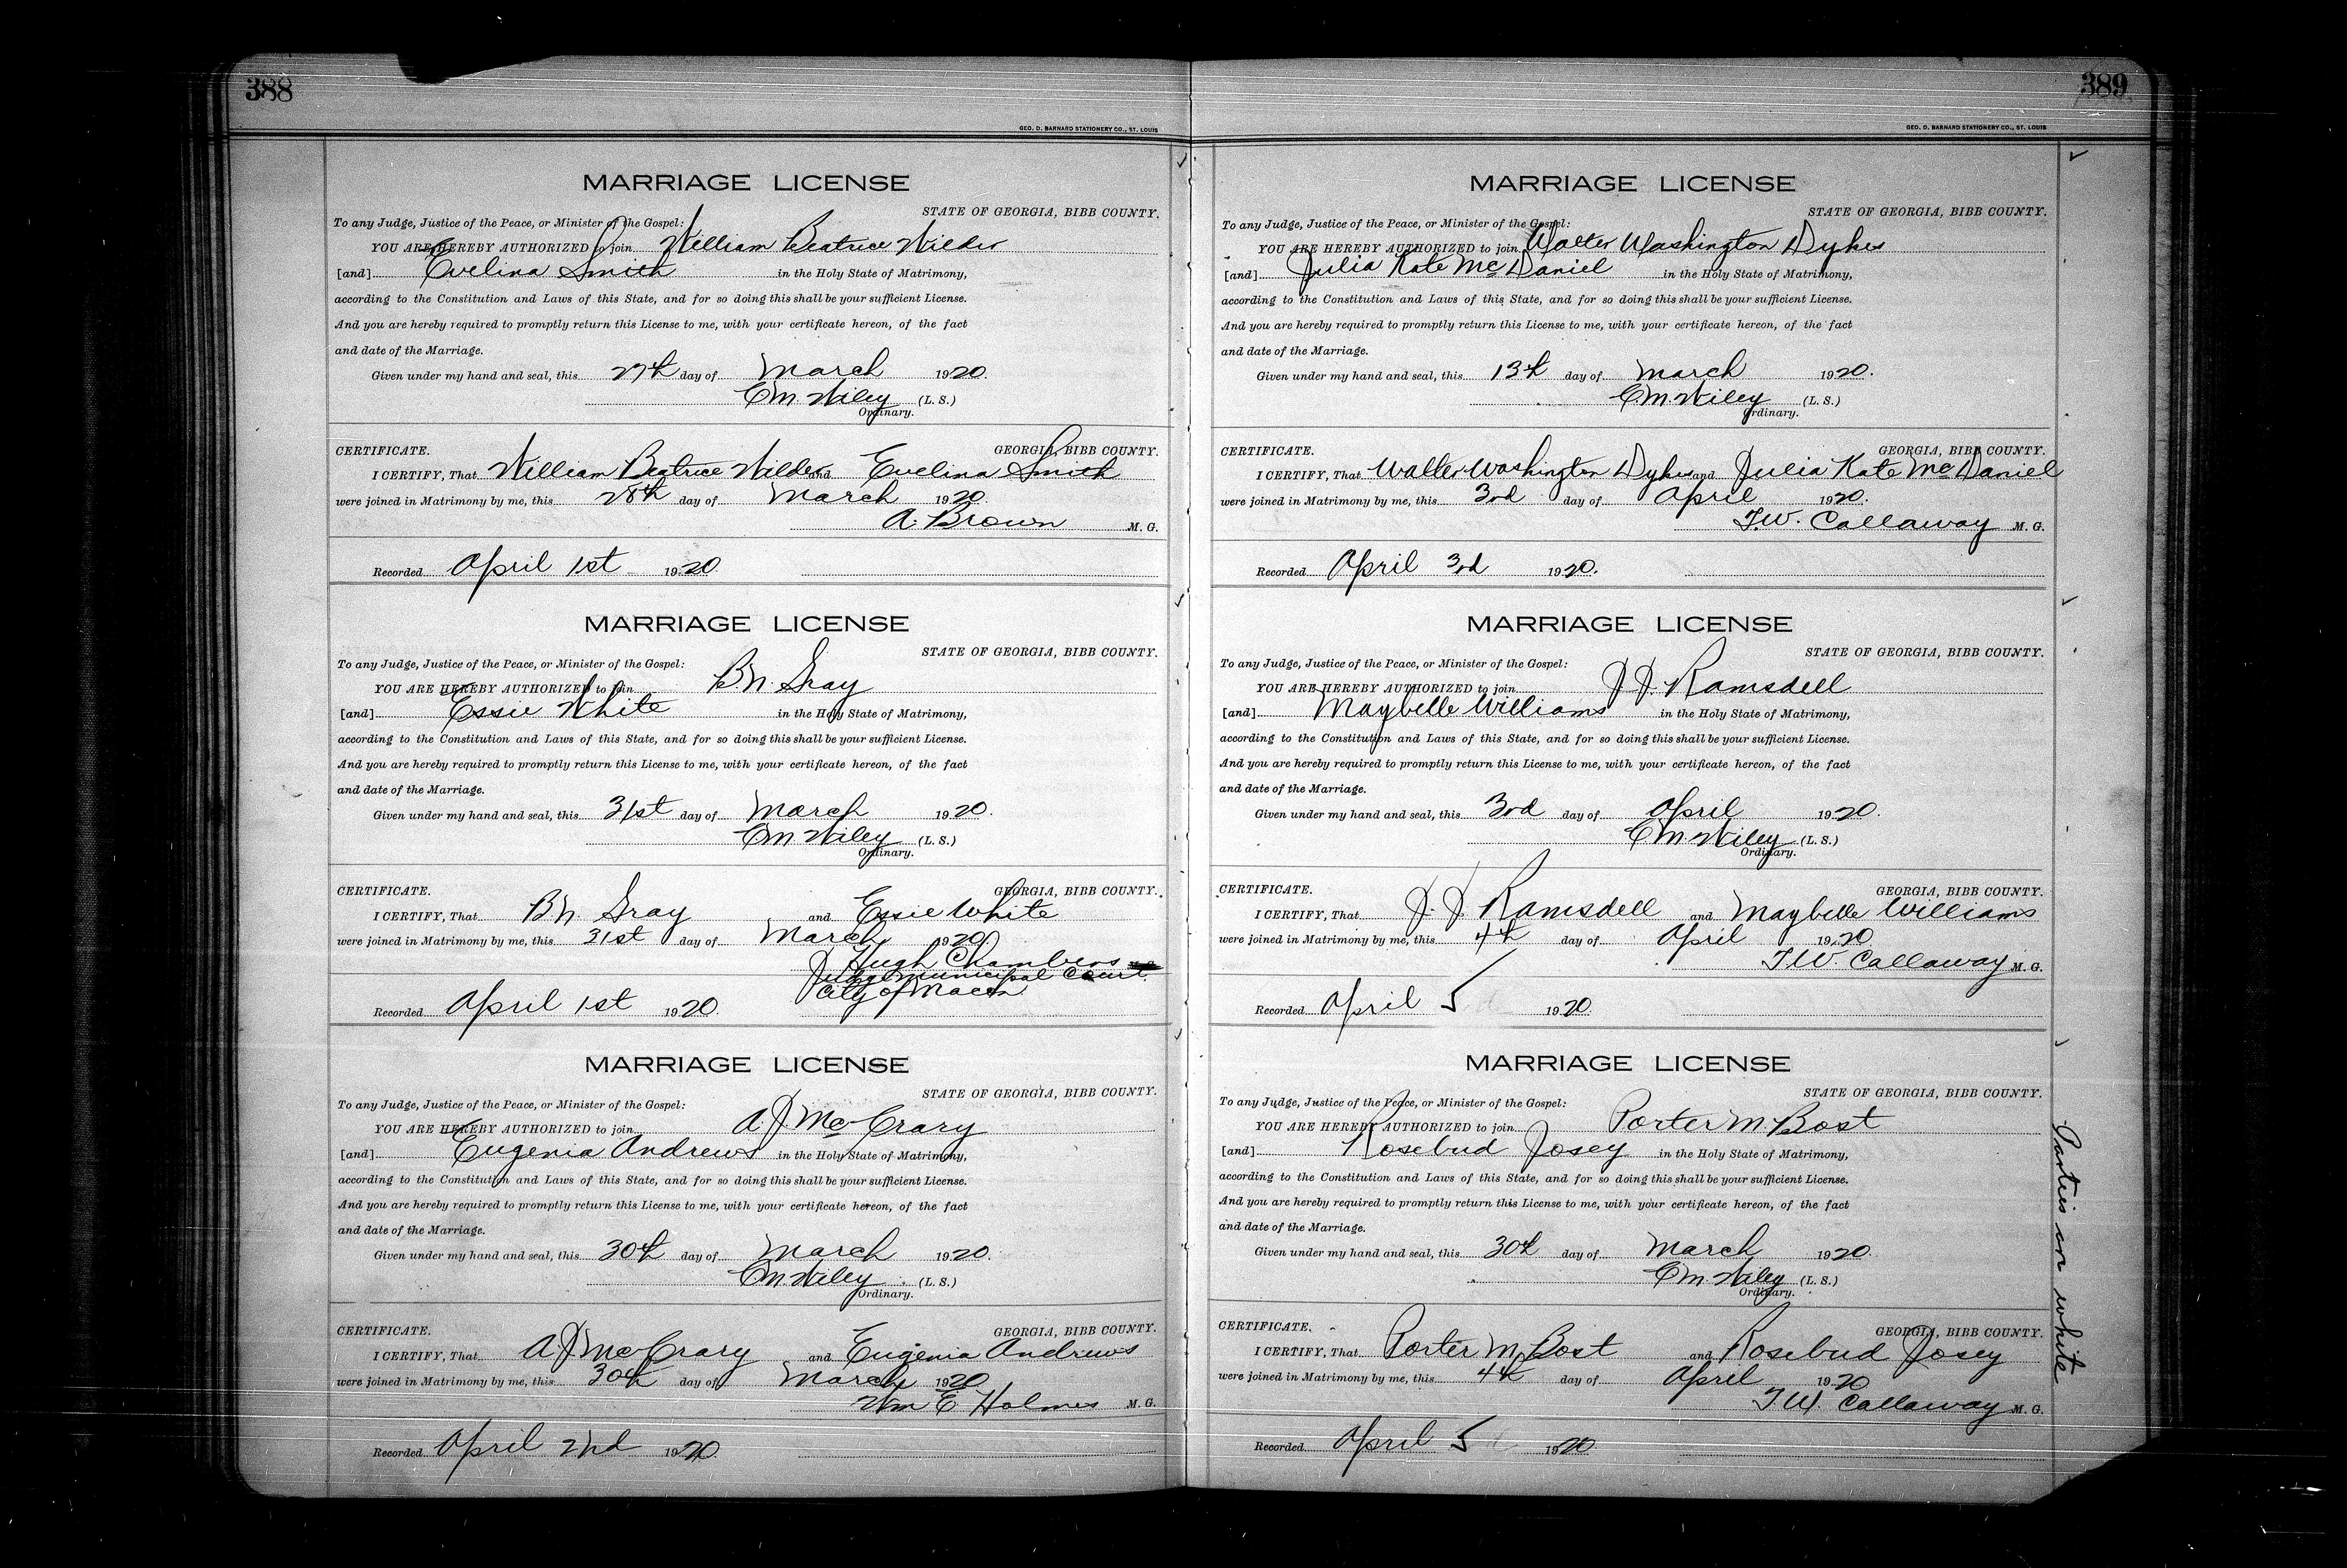 388
GEO. D. BARNARD STATIONERY CO., ST. LOUIS
MARRIAGE LICENSE
STATE OF GEORGIA, BIBB COUNTY.
To any Judge, Justice of the Peace, or Minister of the Gospel:
YOU ARE HEREBY AUTHORIZED to join William Beatrice Wilder
[and] Evelina Smith in the Holy State of Matrimony,
according to the Constitution and Laws of this State, and for so doing this shall be your sufficient License.
And you are hereby required to promptly return this License to me, with your certificate hereon, of the fact
and date of the Marriage.
Given under my hand and seal, this 27th day of March 1920.
C M. Wiley (L. S.)
Ordinary.
CERTIFICATE. GEORGIA, BIBB COUNTY.
I CERTIFY, That William Beatrice Wilder and Evelina Smith
were joined in Matrimony by me, this 28th day of March 1920.
A. Brown M. G.
Recorded April 1st 1920.
MARRIAGE LICENSE
STATE OF GEORGIA, BIBB COUNTY.
To any Judge, Justice of the Peace, or Minister of the Gospel:
YOU ARE HEREBY AUTHORIZED to join B. N. Gray
[and] Essie White in the Holy State of Matrimony,
according to the Constitution and Laws of this State, and for so doing this shall be your sufficient License.
And you are hereby required to promptly return this License to me, with your certificate hereon, of the fact
and date of the Marriage.
Given under my hand and seal, this 31st day of March 1920.
C M Wiley (L. S.)
Ordinary.
CERTIFICATE. GEORGIA, BIBB COUNTY.
I CERTIFY, That B N. Gray and Essie White
were joined in Matrimony by me, this 31st day of March 1920.
Hugh Chambers
Judge Municipal Court
City of Macon
Recorded April 1st 1920.
MARRIAGE LICENSE
STATE OF GEORGIA, BIBB COUNTY.
To any Judge, Justice of the Peace, or Minister of the Gospel:
YOU ARE HEREBY AUTHORIZED to join A. J. McCrary
[and] Eugenia Andrews in the Holy State of Matrimony,
according to the Constitution and Laws of this State, and for so doing this shall be your sufficient License.
And you are hereby required to promptly return this License to me, with your certificate hereon, of the fact
and date of the Marriage.
Given under my hand and seal, this 30th day of March 1920.
C M. Wiley (L. S.)
Ordinary.
CERTIFICATE. GEORGIA, BIBB COUNTY.
I CERTIFY, That A. J McCrary and Eugenia Andrews
were joined in Matrimony by me, this 30th day of March 1920
Wm E Holmes M. G.
Recorded April 2nd 1920.
389
GEO. D. BARNARD STATIONERY CO., ST. LOUIS
MARRIAGE LICENSE
STATE OF GEORGIA, BIBB COUNTY.
To any Judge, Justice of the Peace, or Minister of the Gospel:
YOU ARE HEREBY AUTHORIZED to join Walter Washington Dykes
[and] Julia Kate McDaniel in the Holy State of Matrimony,
according to the Constitution and Laws of this State, and for so doing this shall be your sufficient License.
And you are hereby required to promptly return this License to me, with your certificate hereon, of the fact
and date of the Marriage.
Given under my hand and seal, this 13th day of March 1920.
C M Wiley (L. S.)
Ordinary.
CERTIFICATE. GEORGIA, BIBB COUNTY.
I CERTIFY, That Walter Washington Dykes and Julia Kate McDaniel
were joined in Matrimony by me, this 3rd day of April 1920.
T. W. Callaway M. G.
Recorded April 3rd 1920.
MARRIAGE LICENSE
STATE OF GEORGIA, BIBB COUNTY.
To any Judge, Justice of the Peace, or Minister of the Gospel:
YOU ARE HEREBY AUTHORIZED to join J. J. Ramsdell
[and] Maybelle Williams in the Holy State of Matrimony,
according to the Constitution and Laws of this State, and for so doing this shall be your sufficient License.
And you are hereby required to promptly return this License to me, with your certificate hereon, of the fact
and date of the Marriage.
Given under my hand and seal, this 3rd day of April 1920.
C M. Wiley (L. S.)
Ordinary.
CERTIFICATE. GEORGIA, BIBB COUNTY.
I CERTIFY, That J. J. Ramsdell and Maybelle Williams
were joined in Matrimony by me, this 4th day of April 1920
T. W. Callaway M. G.
Recorded April 5 1920.
MARRIAGE LICENSE
STATE OF GEORGIA, BIBB COUNTY.
To any Judge, Justice of the Peace, or Minister of the Gospel:
YOU ARE HEREBY AUTHORIZED to join Porter M. Bost
[and] Rosebud Josey in the Holy State of Matrimony,
according to the Constitution and Laws of this State, and for so doing this shall be your sufficient License.
And you are hereby required to promptly return this License to me, with your certificate hereon, of the fact
and date of the Marriage.
Given under my hand and seal, this 30th day of March 1920.
C M. Wiley (L. S.)
Ordinary.
CERTIFICATE. GEORGIA, BIBB COUNTY.
I CERTIFY, That Porter M. Bost and Rosebud Josey
were joined in Matrimony by me, this 4th day of April 1920
T. W. Callaway M. G.
Recorded April 5 1920
Parties are white